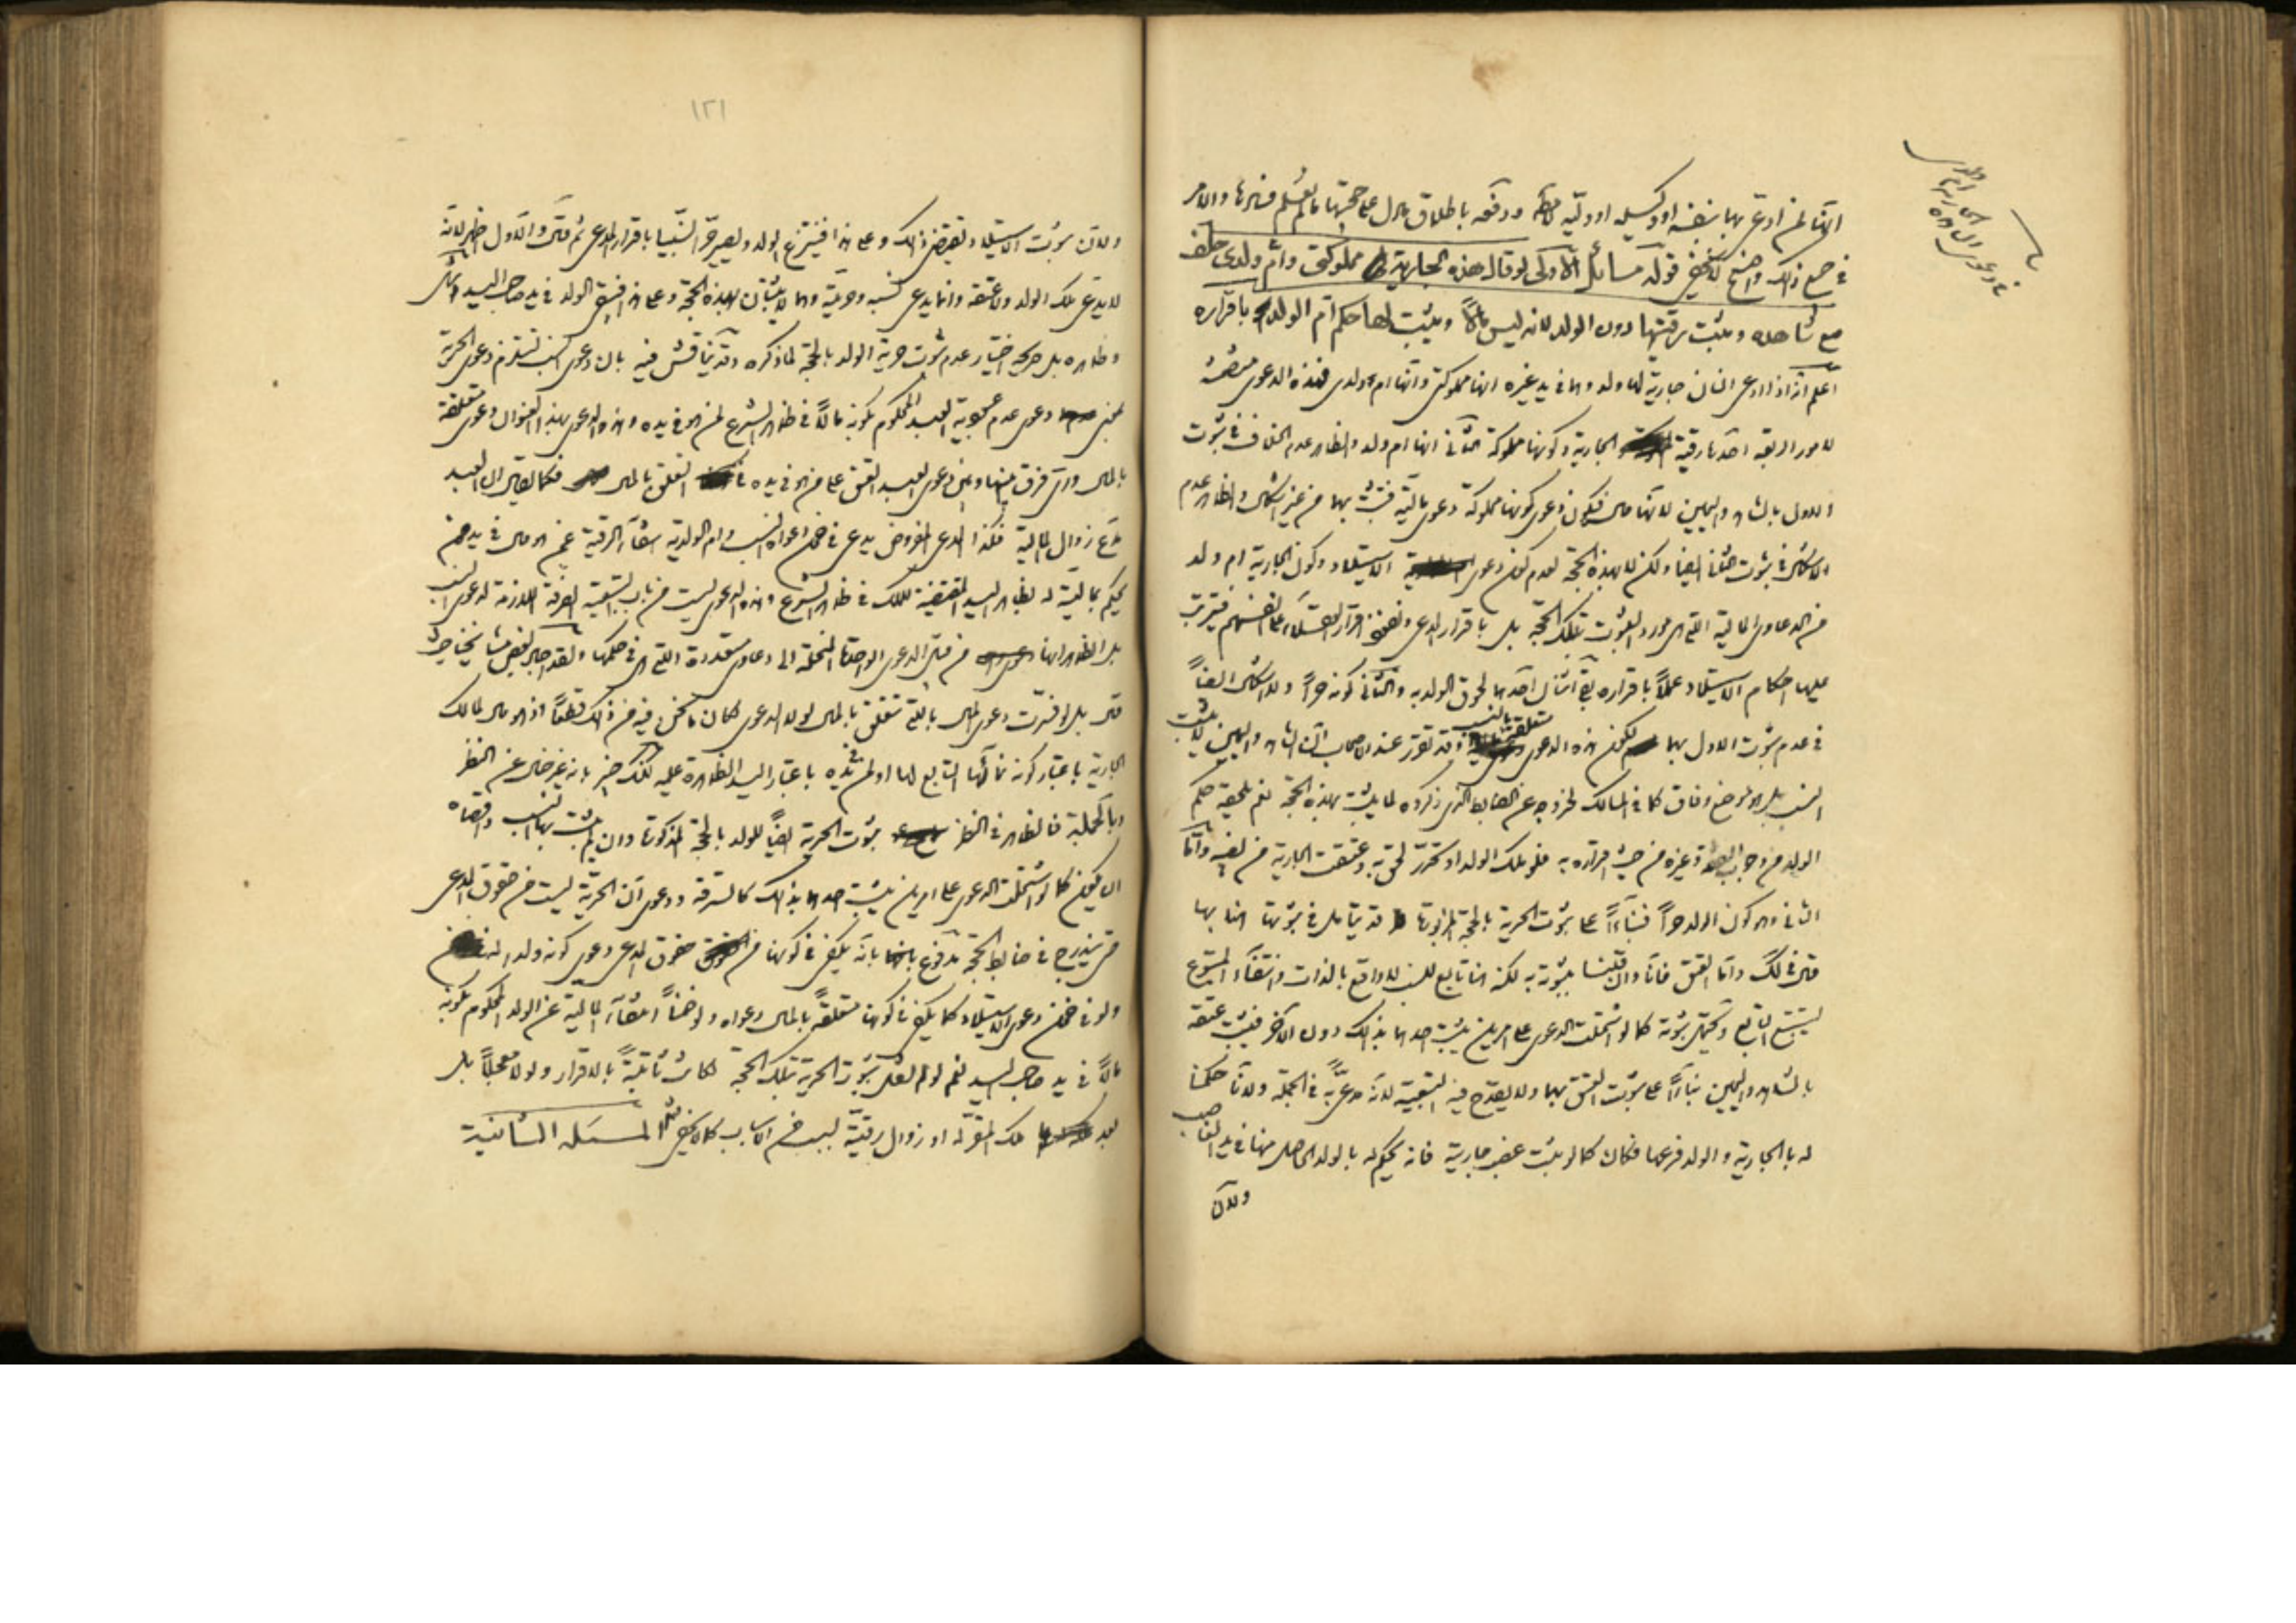 في دعوى ان الجارية ام ولد
في جميع ذلك واضح لا يخفى قوله مسائل الاولى لو قال هذه الجارية مملوكتي وام ولدي حلف
مع شاهده ويثبت رقيتها دون الولد لانه ليس مالاً ويثبت لها حكم ام الولد باقراره
اعلم انه اذا ادعى انسان جارية لها ولد وهما في يد غيره انها مملوكتي وانها ام ولدي فهذه الدعوى متضمنة
لامور اربعة احدها رقية الجارية وكونها مملوكة الثاني انها ام ولد والظاهر عدم الخلاف في ثبوت
الاول بالشاهد واليمين لانها مال فيكون دعوى كونها مملوكة دعوى مالية فتثبت بهما من غير اشكال والظاهر عدم
الاشكال في ثبوت الثاني ايضا ولكن لا بهذه الحجة لعدم كون دعوى الاستيلاد وكون الجارية ام ولد
من الدعاوى المالية التي هي مورد الثبوت بتلك الحجة بل باقرار المدعي ونفوذ اقرار العقلاء على انفسهم فيترتب
عليها احكام الاستيلاد عملاً باقراره بقي اثنان احدهما لحوق الولد به والثاني كونه حراً ولا اشكال ايضاً
في عدم ثبوت الاول بهما لكون هذه الدعوى متعلقة بالنسب وقد تقرر عند الاصحاب ان الشاهد واليمين لا يثبت
النسب بل هو موضع وفاق كما في المسالك لخروجه عن الضابط الذي ذكروه لما يثبت بهذه الحجة نعم يلحقه حكم
الولد من وجوب النفقة وغيره من حيث اقراره به فلو ملك الولد او تحرر لحق به وعتقت الجارية من نصيبه واما
الثاني وهو كون الولد حراً فبناءً على ثبوت الحرية بالحجة المزبورة قد يتأمل في ثبوتها هنا بها
قال في لك واما العتق فانا وان قلنا بثبوته به لكنه هنا تابع للنسب لا واقع بالذات وانتفاء المتبوع
يستتبع التابع ويحتمل ثبوته كما لو اشتملت الدعوى على امرين يثبت احدهما بذلك دون الآخر فيثبت عتقه
بالشاهد واليمين بناءً على ثبوت العتق بهما ولا يقدح فيه التبعية لانه مدعى به في الجملة ولانا حكمنا
له بالجارية والولد فرعها فكان كما لو يثبت غصب جارية فانه يحكم له بالولد الحاصل منها في يد الغاصب
ولان
١٢١
ولان ثبوت الاستيلاد يقتضي ذلك وعلى هذا فينتزع الولد ويصير حراً نسيباً باقرار المدعي ثم قال والاول اظهر لانه
لا يدعي ملك الولد ولا عتقه وانما يدعي نسبه وحريته وهما لا يثبتان بهذه الحجة وعلى هذا فيبقى الولد في يد صاحب اليد انتهى
وظاهره بل صريحه اختيار عدم ثبوت حرية الولد بالحجة لما ذكره وقد يناقش فيه بان دعوى النسب تستلزم دعوى الحرية
بمعنى دعوى عدم محبوبية العبد المحكوم بكونه مالاً في ظاهر الشرع لمن هو في يده وهذه الدعوى بهذا العنوان دعوى متعلقة
بالمال واي فرق بينها وبين دعوى العبد العتق على من هو في يده في التعلق بالمال فكما يقال ان العبد
يدعي زوال المالية فكذا المدعي المفروض يدعي في ضمن دعواه النسب وام الولدية انتفاء الرقية عمن هو مال في يد من
يحكم بمالية له لظاهر اليد المقتضية للملك في ظاهر الشرع وهذه الدعوى ليست من باب التبعية الصرفة اللازمة لدعوى النسب
بل الظاهر انها من قبيل الدعوى الواحدة المنحلة الى دعاوى متعددة التي هي في حكمها ولقد اجاد بعض مشايخنا حيث
قال بل لو فسرت دعوى المال بالتي تتعلق بالمال لولا الدعوى لكان ما نحن فيه من ذلك قطعاً اذ هو مال لمالك
الجارية باعتبار كونه نمائها التابع لها او لمن في يده باعتبار اليد الظاهرة عليه لكنك خبير بانه غير خال عن النظر
وبالجملة فالظاهر في النظر ثبوت الحرية ايضاً للولد بالحجة المذكورة وان لم يثبت بها النسب واقصاه
ان يكون كما لو اشتملت الدعوى على امرين يثبت احدهما بذلك كالسرقة ودعوى ان الحرية ليست من حقوق المدعي
حتى يندرج في ضابط الحجة مدفوع بانه يكفي في كونها من حقوق المدعي دعوى كونه ولد له
ولو في ضمن دعوى الاستيلاد كما يكفي في كونها متعلقة بالمال دعواه ولو ضمناً انتفاء المالية عن الولد المحكوم بكونه
مالاً في يد صاحب اليد نعم لو لم نقل بثبوت الحرية بتلك الحجة لكانت ثابتة بالاقرار ولو لا معجلاً بل
بعد ملك المقر له او زوال رقيته بسبب من الاسباب كما لا يخفى المسئلة الثانية